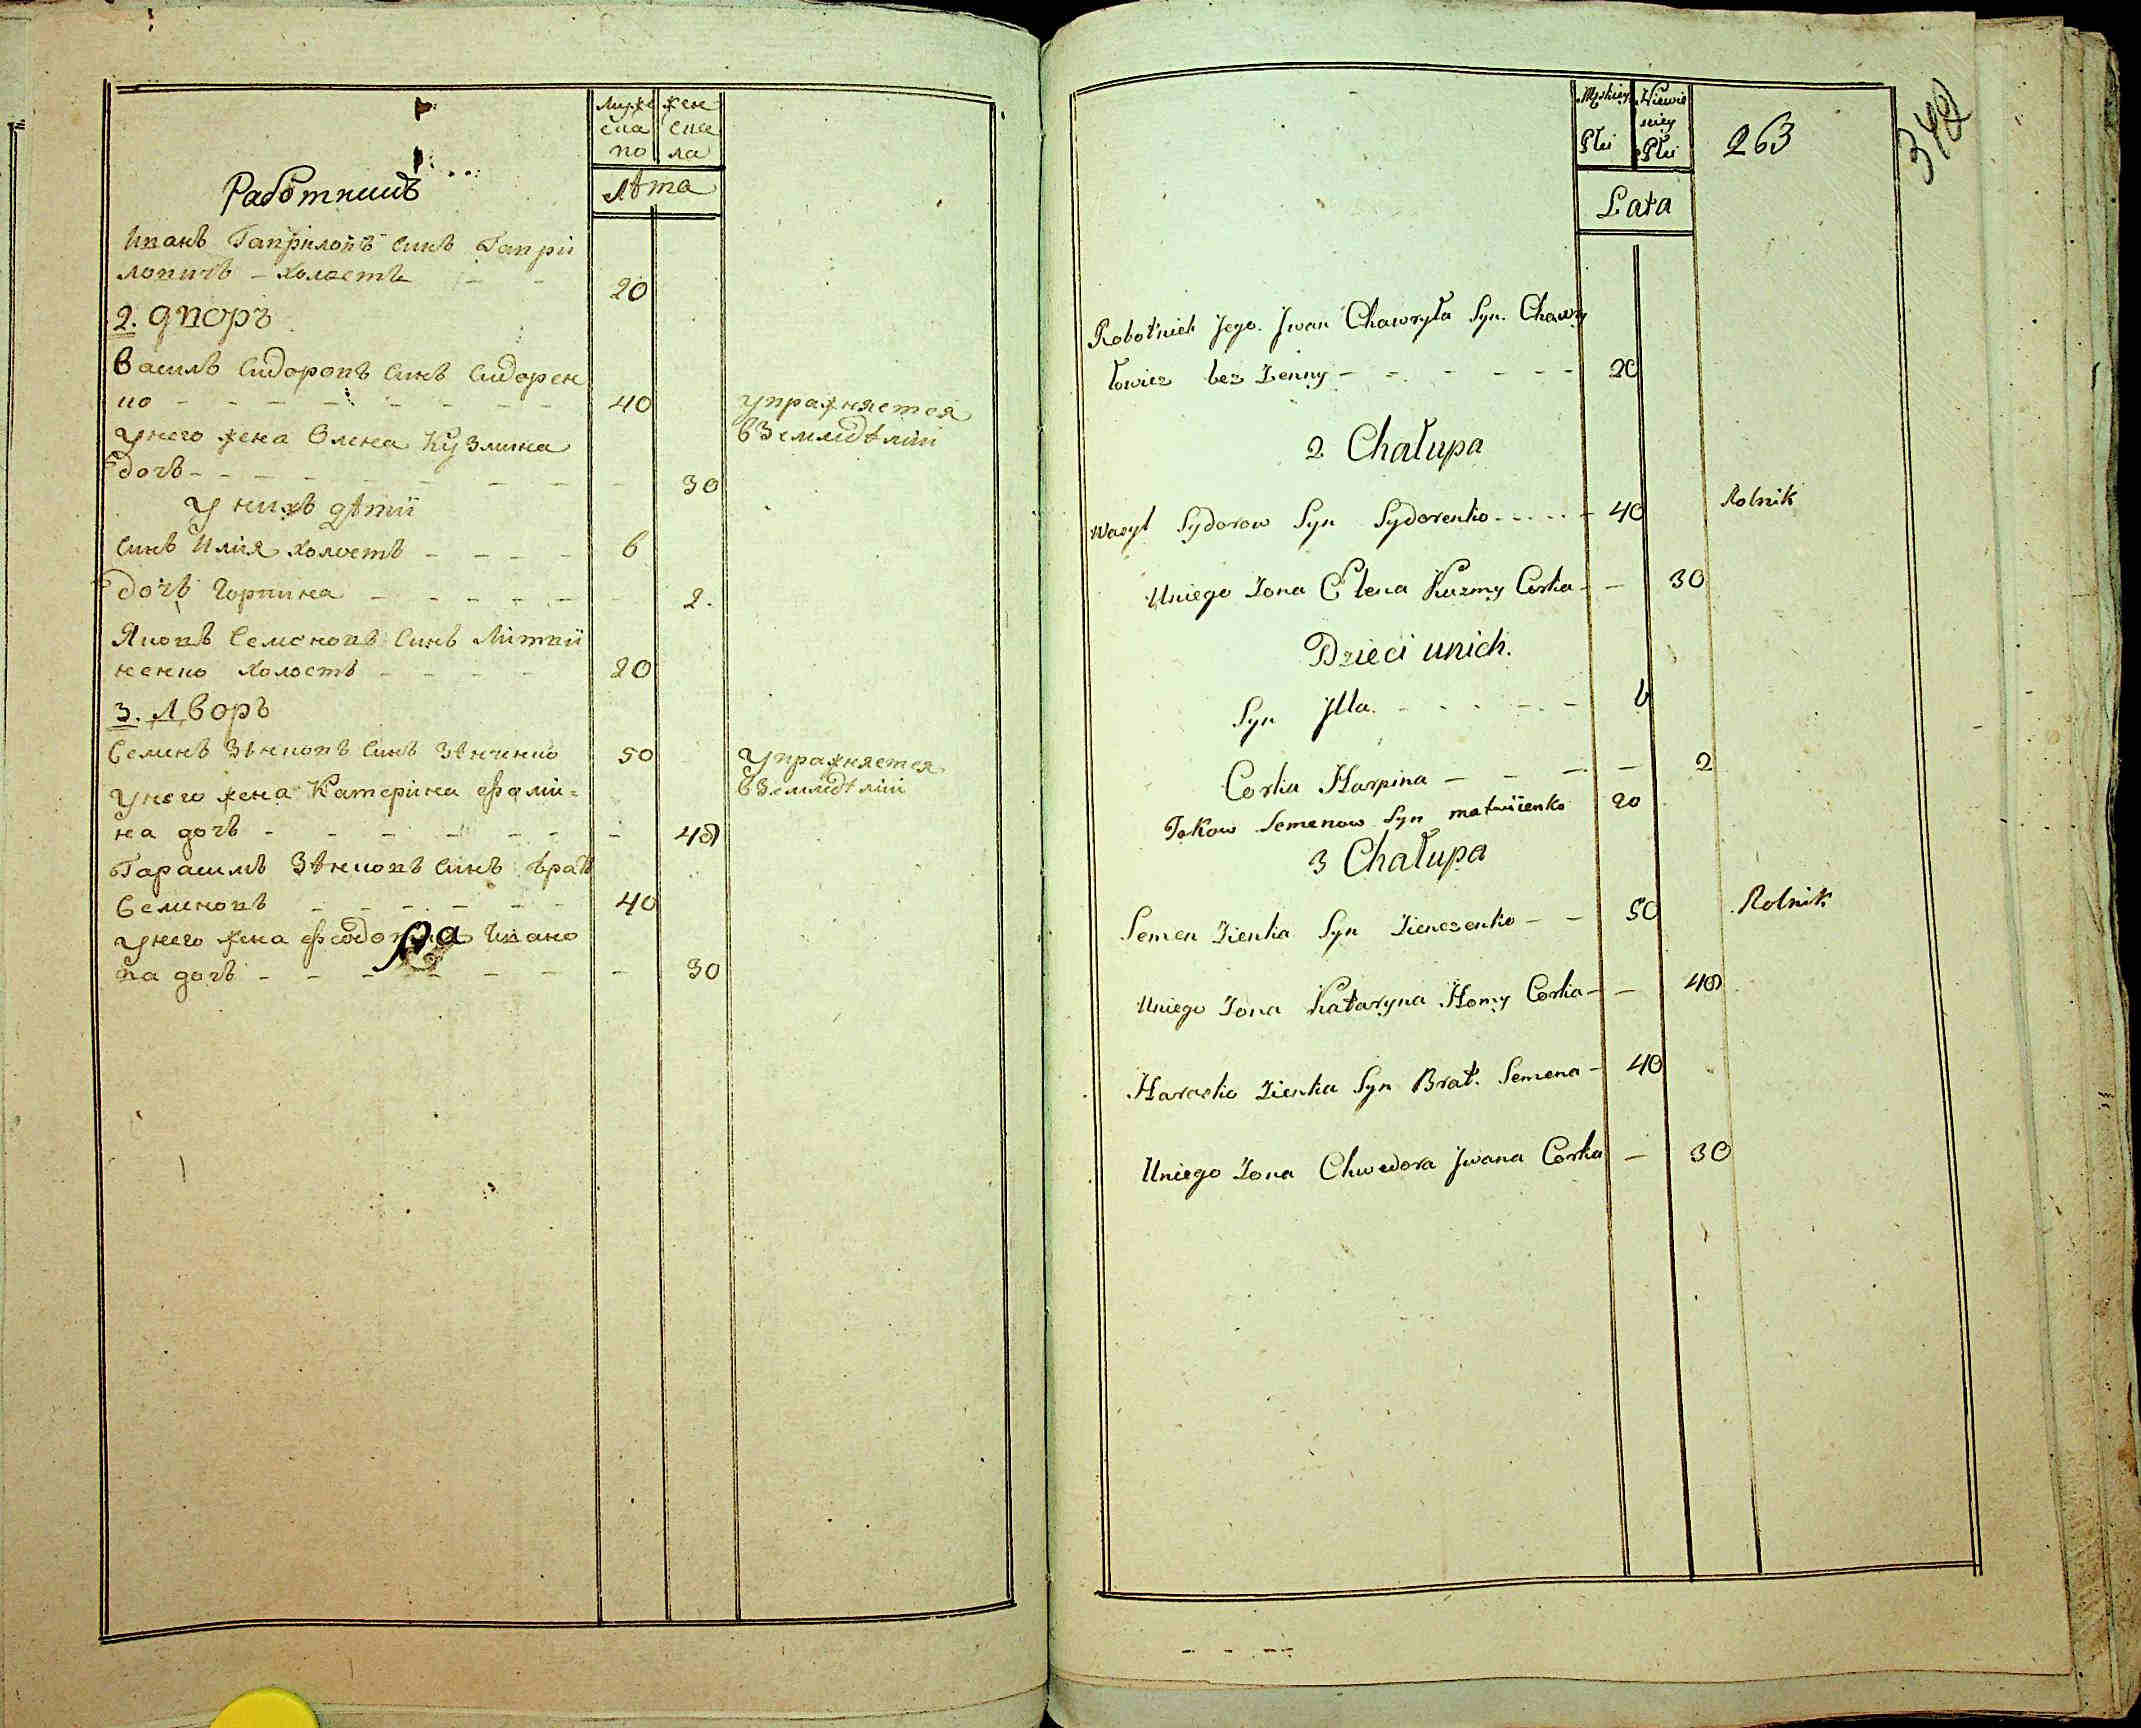 муже жен
ска ска
по ла
Лѣта
Работникъ
Иванъ Гаврiловъ синъ Гаврi
ловичъ – холостъ – – 20
2. дворъ
Василь Сидоровъ синъ Сидорен
ко – – – – – – – – 40 упражняется
в земледѣлiи
у него жена Олена Кузмина
дочъ – – – – – – – – 30
у нихъ дѣтiи
синъ Илiя холостъ – – – – 6
дочъ Горпина – – – – – – 2.
Яковъ Семеновъ синъ Мiтвiй
ненко холостъ – – – – 20
3. Дворъ
Семенъ Зѣнковъ синъ Зѣнченко 50 упражняется
в земледѣлiи
у него жена Катерiна Фомi=
на дочъ – – – – – – – 40
Гарасимъ Зѣнковъ синъ братъ
Семеновъ – – – – – – 40
у него жена Феодора Ивано
ва дочъ – – – – – – – 30
Męskiey Niewie
sciey
Płci Płci
263
340
Lata
Robotnick Jego. Jwan Chawryła Syn. Chawry
łowicz bez Zenny – – – – – – 20
2 Chałupa
Wasyl Sydorow Syn Sydorenko – – – – 40 Rolnik
Uniego Zona Olena Kuzmy Corka – – 30
Dzieci unich.
Syn Jlla. – – – – – – 6
Corka Harpina – – – – 2
Jakow Semenow Syn matwiienko 20
3 Chałupa
Semen Zienka Syn Zienczenko – – 50 Rolnik
Uniego Zona Kataryna Homy Corka – – 40
Harasko Zienka Syn Brat. Semena – 40
Uniego Zona Chwedora Jwana Corka – 30